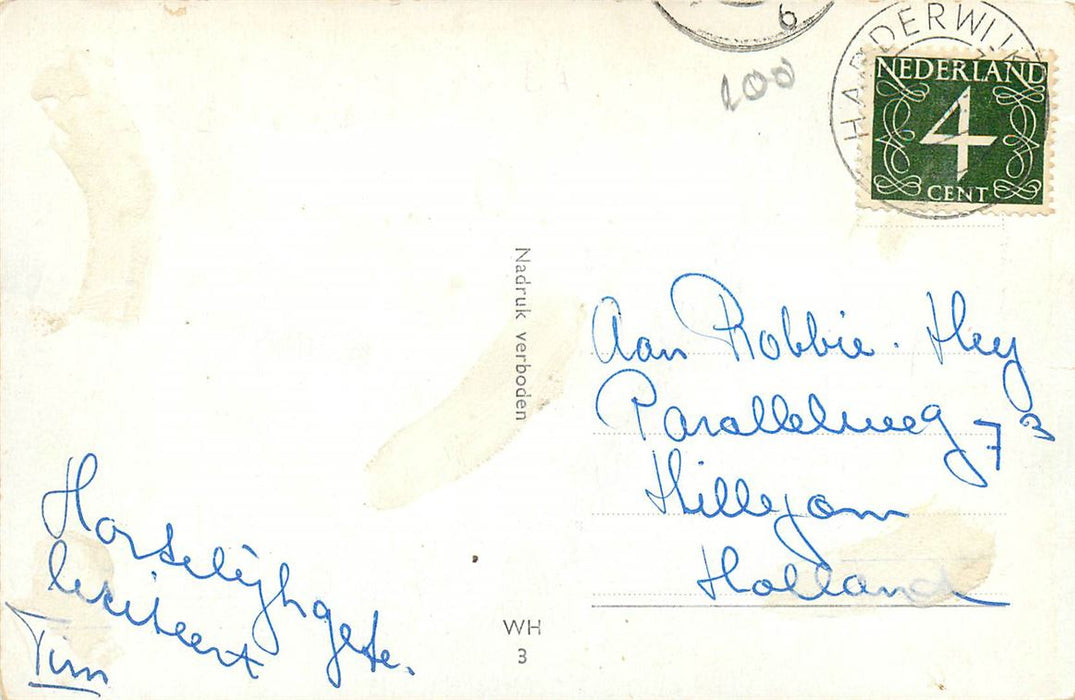 6
HARDERWIJK
NEDERLAND
4
CENT
200
Nadruk verboden
Aan Robbie. Hey
Parallelweg 73
Hillegom
Holland
Hartelijk gefe.
liciteert
Tim
WH
3